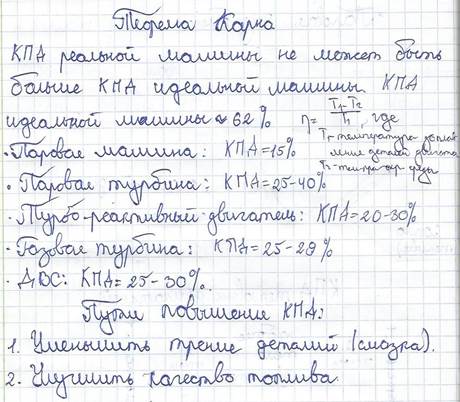 Теорема Карно
КПД реальной машины не может быть
больше КПД идеальной машины. КПД
идеальной машины ~ 62% η = (T₁-T₂)/T₁, где
T₁-температура плав
ление деталей двигат
• Паровая машина: КПД=15%
T₂-темпра окр среды
• Паровая турбина: КПД=25-40%
• Турбо-реактивный двигатель: КПД=20-30%
• Газовая турбина: КПД=25-29%
• ДВС: КПД=25-30%.
Пути повышение КПД:
1. Уменьшить трение деталий (смазка).
2. Улучшить качество топлива.